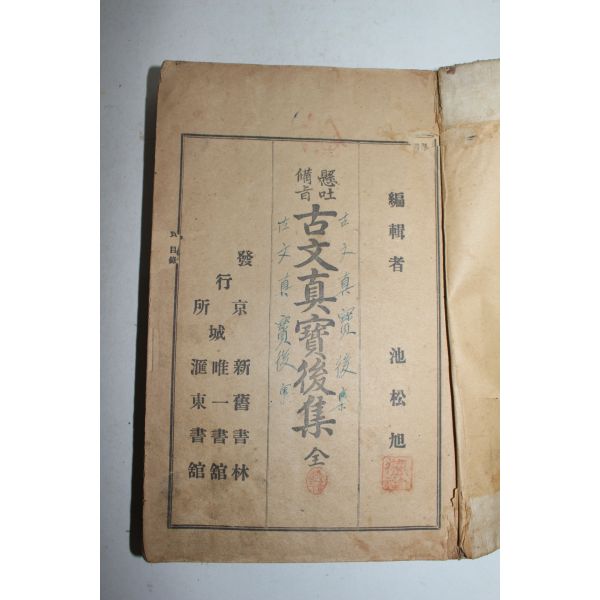 編輯者 池松旭
懸吐
備旨
古文真寶後集 全
古文真寶後集
古文真寶後
發行所
京城
新舊書林
唯一書舘
滙東書舘
目錄